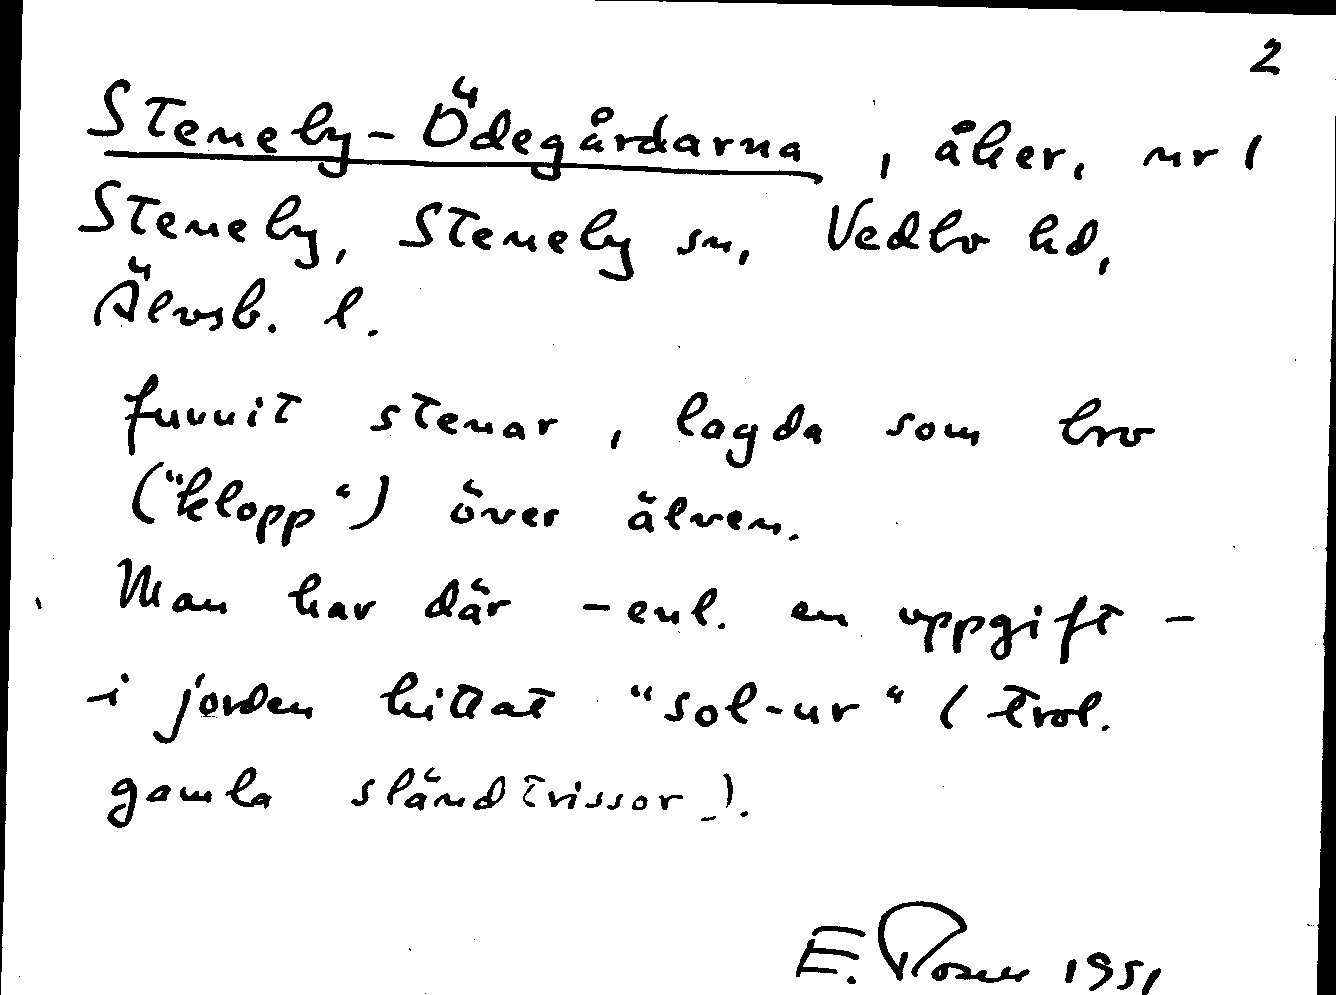 2
Steneby-Ödegårdarna, åker, nr 1
Steneby, Steneby sn, Vedbo hd,
Älvsb. l.
funnit stenar, lagda som bro
("klopp") över älven.
Man har där - enl. en uppgift -
i jorden hittat "sol-ur" (trol.
gamla sländtrissor).
E. Rosell 1951